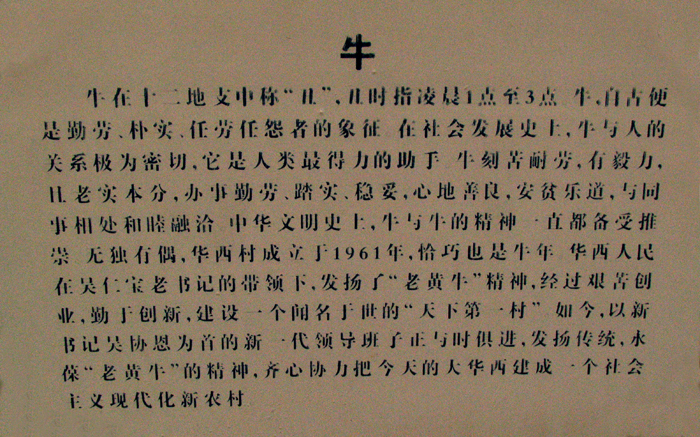 牛
牛在十二地支中称“丑”,丑时指凌晨1点至3点 牛,自古便
是勤劳、朴实、任劳任怨者的象征 在社会发展史上,牛与人的
关系极为密切,它是人类最得力的助手 牛刻苦耐劳,有毅力,
且老实本分,办事勤劳、踏实、稳妥,心地善良,安贫乐道,与同
事相处和睦融洽 中华文明史上,牛与牛的精神一直都备受推
崇 无独有偶,华西村成立于1961年,恰巧也是牛年 华西人民
在吴仁宝老书记的带领下,发扬了“老黄牛”精神,经过艰苦创
业,勤于创新,建设一个闻名于世的“天下第一村” 如今,以新
书记吴协恩为首的新一代领导班子正与时俱进,发扬传统,永
葆“老黄牛”的精神,齐心协力把今天的大华西建成一个社会
主义现代化新农村